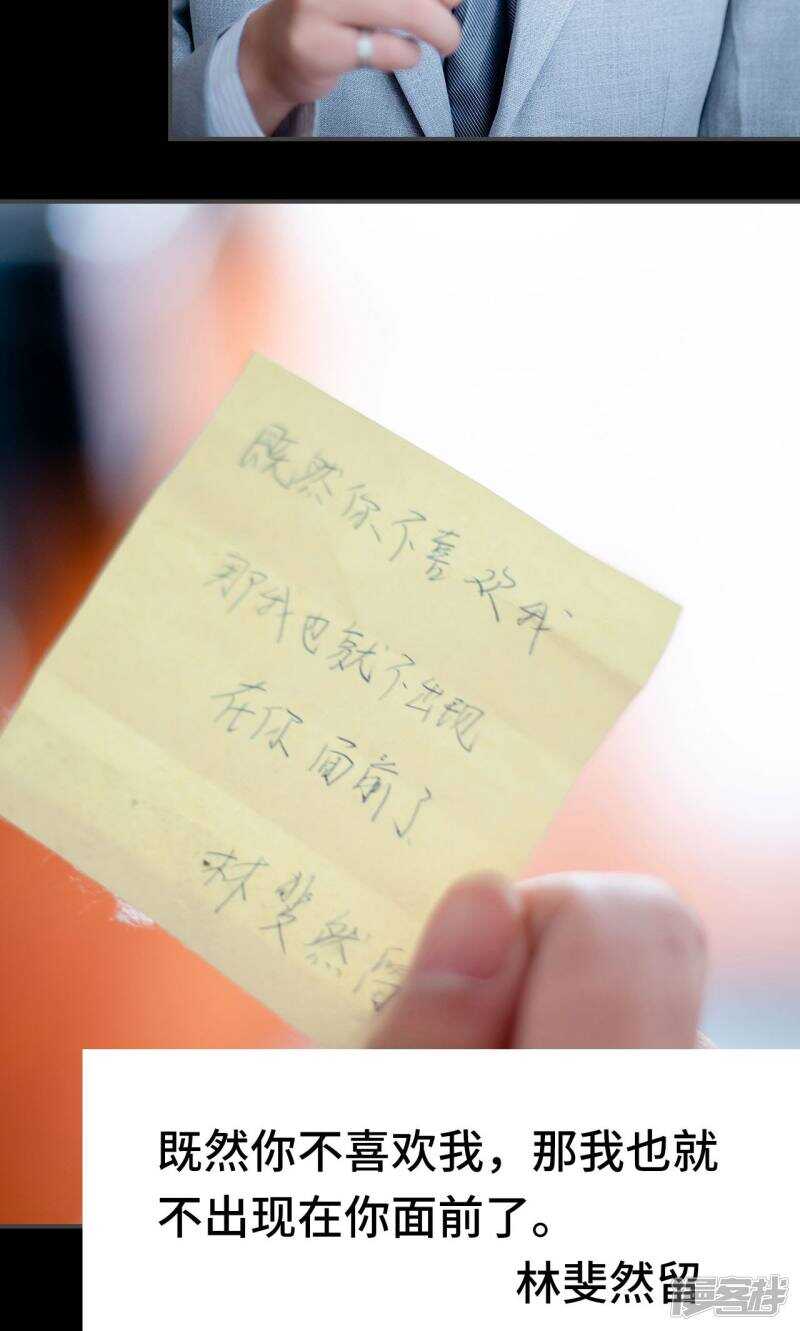 既然你不喜欢我
那我也就不出现
在你面前了
林斐然留
既然你不喜欢我，那我也就
不出现在你面前了。
林斐然留
漫客栈